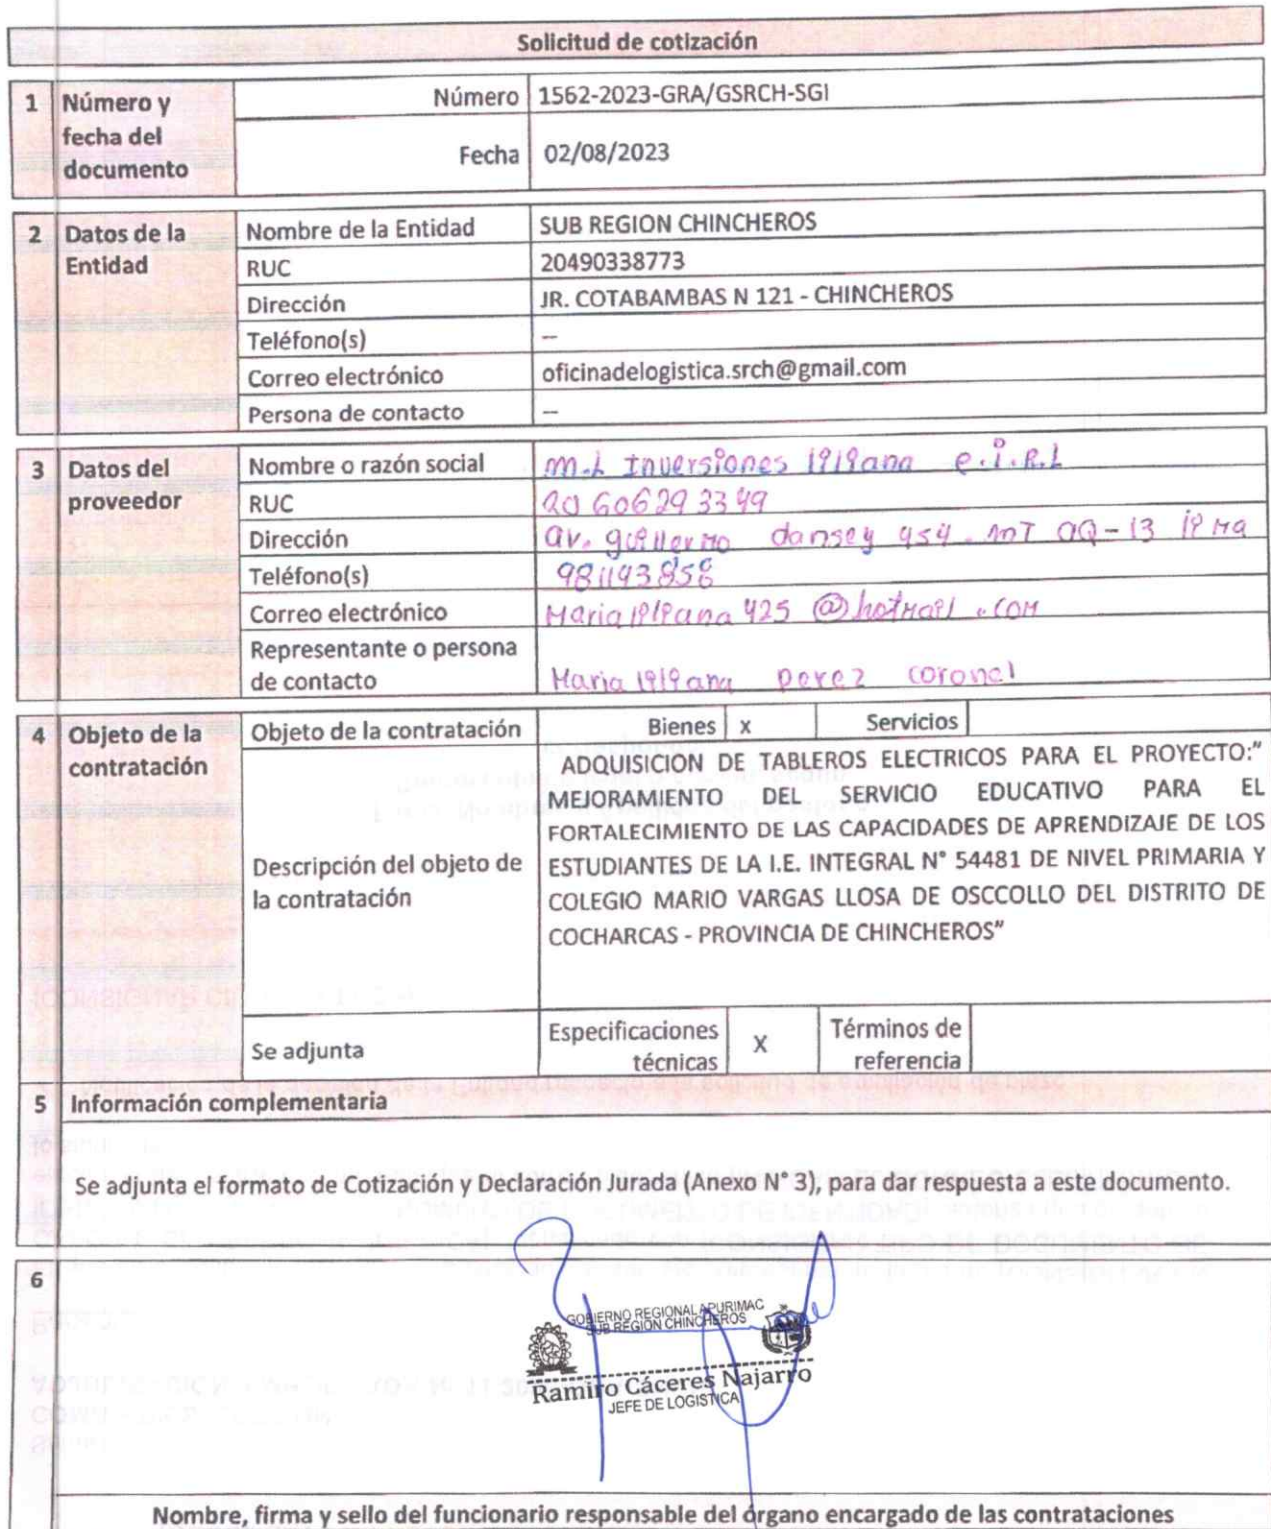 Solicitud de cotización
1 Número y fecha del documento
Número 1562-2023-GRA/GSRCH-SGI
Fecha 02/08/2023
2 Datos de la Entidad
Nombre de la Entidad SUB REGION CHINCHEROS
RUC 20490338773
Dirección JR. COTABAMBAS N 121 - CHINCHEROS
Teléfono(s) --
Correo electrónico oficinadelogistica.srch@gmail.com
Persona de contacto --
3 Datos del proveedor
Nombre o razón social M.L Inversiones liliana e.i.R.L
RUC 20606293349
Dirección av. guillermo dansey 454. INT QQ-13 liMa
Teléfono(s) 981193856
Correo electrónico Maria liliana 425 @hotMail.COM
Representante o persona
de contacto Maria liliana perez coronel
4 Objeto de la contratación
Objeto de la contratación Bienes x Servicios
Descripción del objeto de
la contratación
ADQUISICION DE TABLEROS ELECTRICOS PARA EL PROYECTO:"
MEJORAMIENTO DEL SERVICIO EDUCATIVO PARA EL
FORTALECIMIENTO DE LAS CAPACIDADES DE APRENDIZAJE DE LOS
ESTUDIANTES DE LA I.E. INTEGRAL N° 54481 DE NIVEL PRIMARIA Y
COLEGIO MARIO VARGAS LLOSA DE OSCCOLLO DEL DISTRITO DE
COCHARCAS - PROVINCIA DE CHINCHEROS"
Se adjunta Especificaciones técnicas X Términos de referencia
5 Información complementaria
Se adjunta el formato de Cotización y Declaración Jurada (Anexo N° 3), para dar respuesta a este documento.
6
GOBIERNO REGIONAL APURIMAC
SUB REGION CHINCHEROS
Ramiro Cáceres Najarro
JEFE DE LOGISTICA
Nombre, firma y sello del funcionario responsable del órgano encargado de las contrataciones